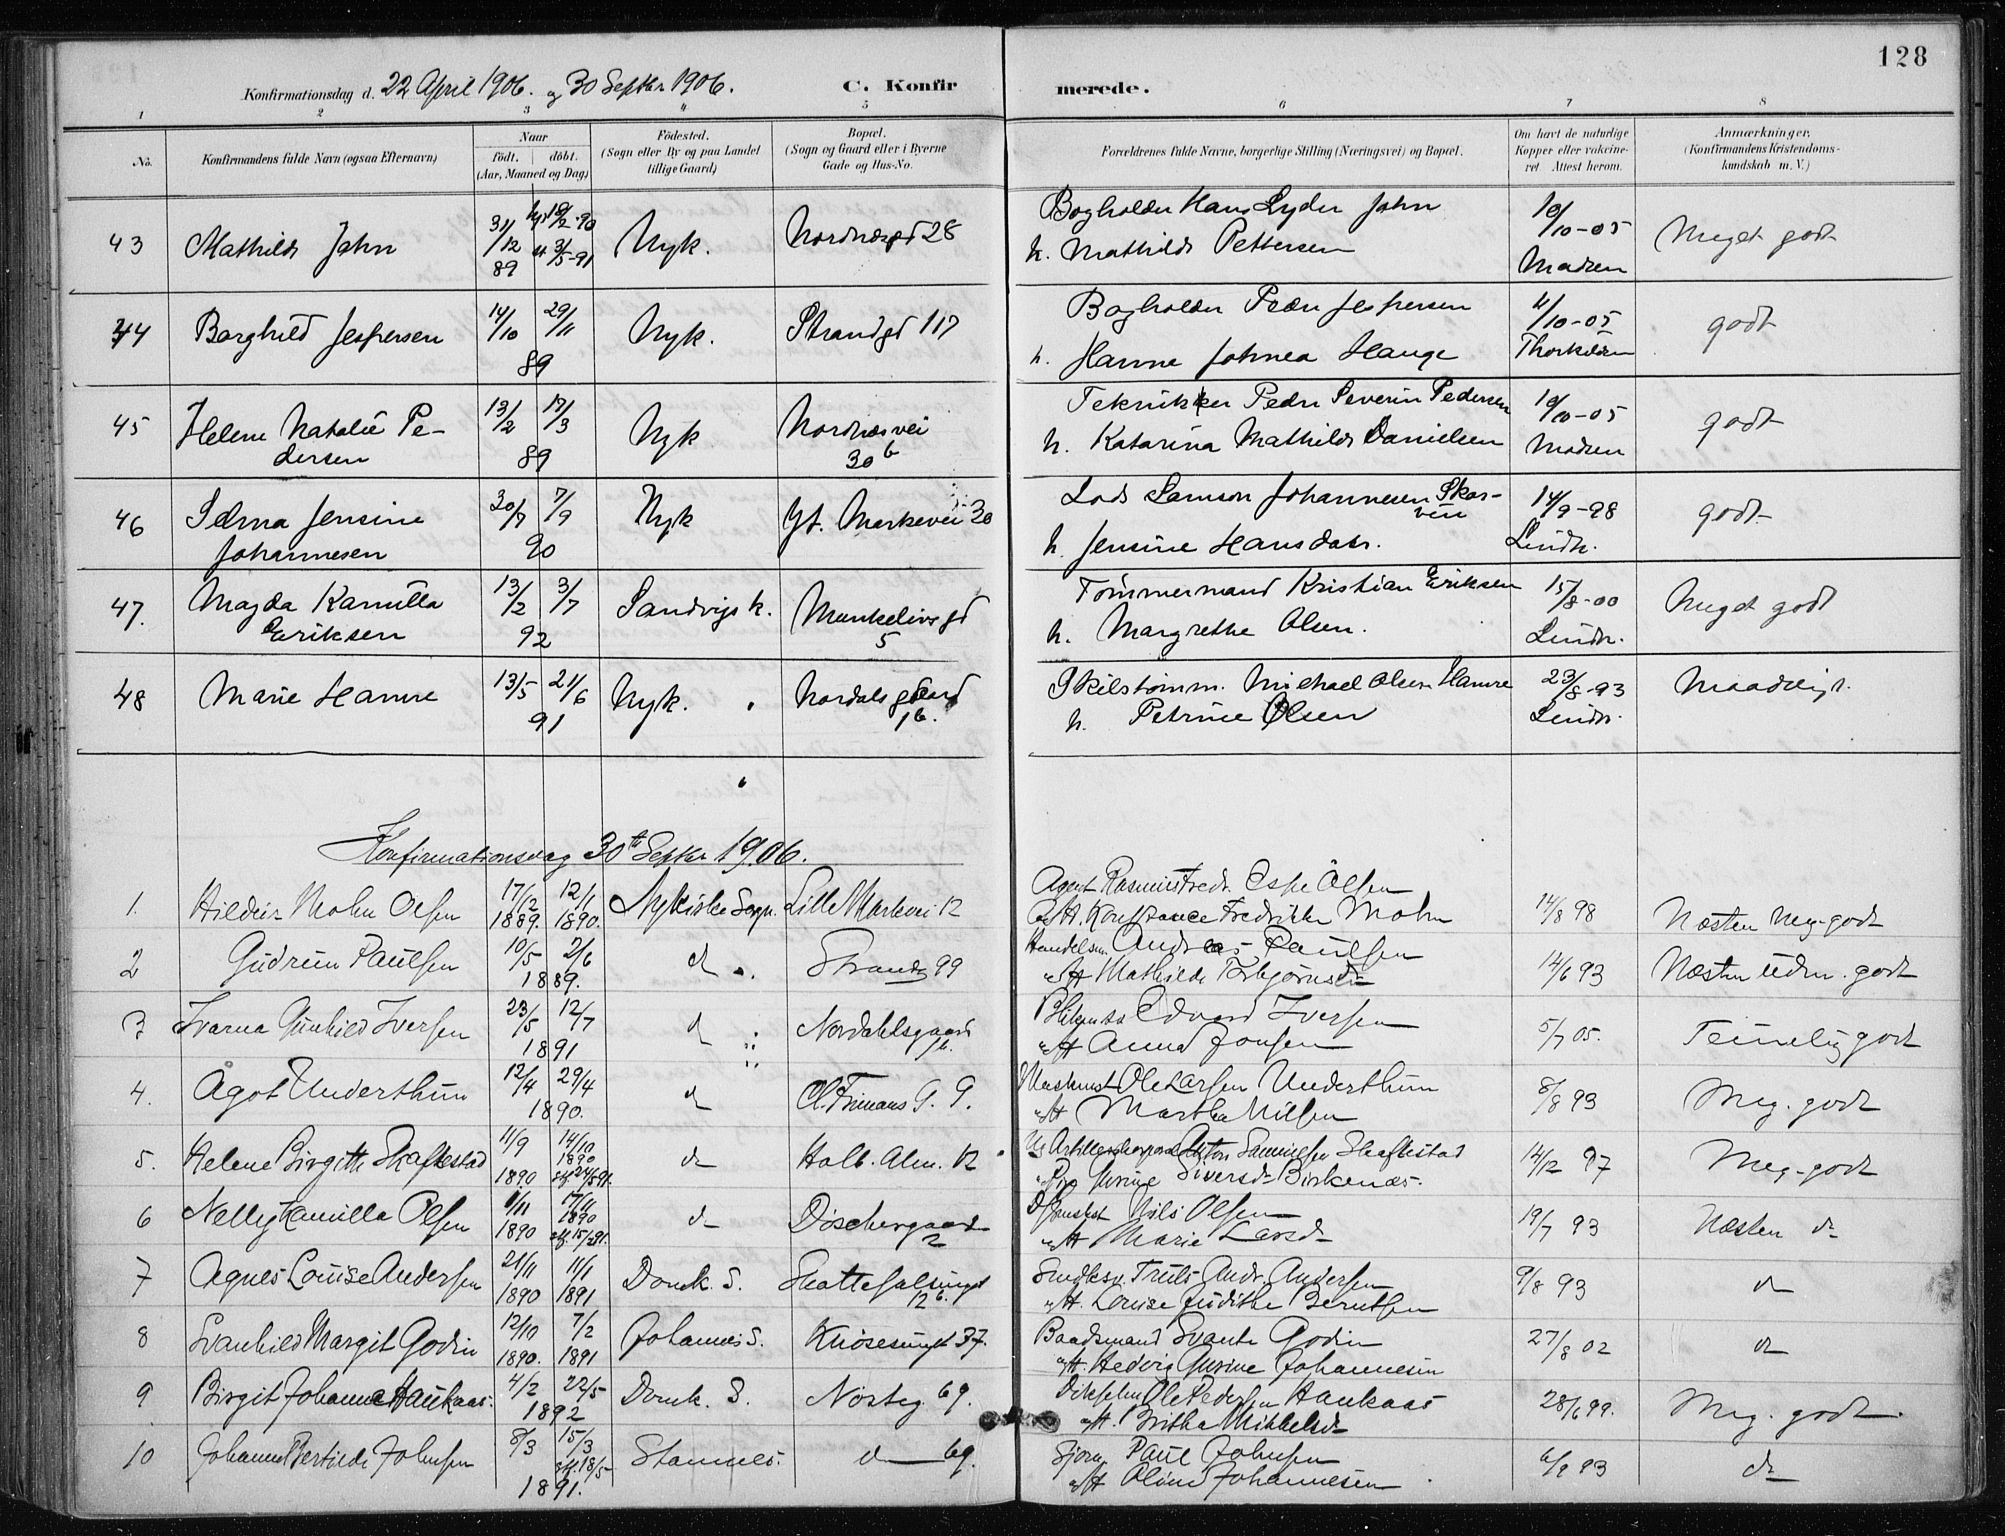 128
Konfirmationsdag d. 22 April 1906. og 30 Septbr 1906.
C. Konfirmerede.
1 2 3 4 5 6 7 8
No.
Konfirmandens fulde Navn (ogsaa Efternavn)
Naar
født. døbt.
(Aar, Maaned og Dag)
Fødested.
(Sogn eller By og paa Landet
tillige Gaard)
Bopæl.
(Sogn og Gaard eller i Byerne
Gade og Hus-No.
Forældrenes fulde Navne, borgerlige Stilling (Næringsvei) og Bopæl.
Om havt de naturlige
Kopper eller vakcine-
ret. Attest herom.
Anmærkninger.
(Konfirmandens Kristendoms-
kundskab m. V.)
43 Mathilde Jahn 31/12 89 3/5-91 Nyk. Nordnæsgd 28
Bogholder Hans Lyder Jahn
h. Mathilde Pettersen
10/10-05 Madsen
Meget godt
44 Borghild Jespersen 14/10 29/11 89 Nyk. Strandgd 117
Bogholder Peder Jespersen
h. Hanne Johnea Hauge
4/10-05 Thorkildsen
godt
45 Helene Natalie Pe-
dersen 13/2 17/3 89 Nyk Nordnæsvei
30 b
Tekniker Peder Severin Pedersen
h. Katarina Mathilde Danielsen
10/10-05 Madsen
godt
46 Selma Jensine
Johannesen 30/7 7/9 90 Nyk Yt. Markevei 20
Lods Samson Johannesen Skar-
vin
h. Jensine Hansdatr.
14/9-98 Lindh.
godt
47. Magda Kamilla
Eriksen 13/2 3/7 92 Sandvigsk. Munkelivsgd
5
Tømmermand Kristian Eriksen
h. Margrethe Olsen.
15/8-00 Lindh.
Meget godt
48 Marie Hamre 13/5 21/6 91 Nyk. Nordalsgaard
16.
Skibstømm. Michael Olsen Hamre
h. Petrine Olsen
23/8-93 Lindh.
Maadeligt.
Konfirmationsdag 30te Septbr 1906.
1. Mohn Olsen 17/12 1889. 12/1 1890. Nykirke Sogn. Lille Markvei 12
Agent Rasmus Fredr. Olsen
H. Konstance Fredrikke Mohn
14/8 98
Næsten Meg. godt
2 Gudrun Paulsen 10/5 2/6 1889. do Strandg 99
Handelsm. Andreas Paulsen
H Mathilde
14/6 93
Næsten udm. godt
3 Ivarna Gunhild Iversen 23/5 12/7 1891 do Nordahlsgaard
16.
Edvard Iversen
H Anna Jonsen
5/7 05.
Temelig godt
4. Ågot Underthun 12/4 29/4 1890. do Cl. Frimans G. 9.
Ole Larsen Underthun
H Martha Nilsen
8/8 93
Meg. godt
5. Helene Birgitte Skaftestad 11/9 1890 14/10 1890 do Holb. Alm. 12
Anton Samuelsen Skaftestad
Gurine Siversd Birkenæs.
14/12 97
Meg. godt
6 Nelly Kamilla Olsen 1/11 1890 17/11 1890 do Dischergaard
2
Nils Olsen
H Marie Larsd
19/7 93
Næsten do
7 Agnes Louise Andersen 21/11 1890 11/1 1891 Domk. S. Skottesalsmgt
12 b.
Truls Andr. Andersen
H. Louise Judithe Berntsen
9/8 93
do
8 Svanhild Margit Godin 12/10 1890. 7/2 1891 Johannes S. Knøsesmgt 37.
Baadsmand Svante Godin
H. Hedvig Gurine Johannesen
27/8 02
do
9 Birgit Johanne Haukaas. 4/2 22/5 1892 Domk. S. Nösteg 69.
Ole Pedersen Haukaas
H. Britha Mikkelsd
28/6 99.
Meg. godt
10 Johanne Bertine Johnsen 8/3 15/3 1891. Stamnes. do 69.
Sjøm. Paul Johnsen
H Oline Johannesen
6/9 93
do